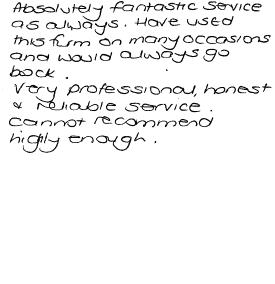 Absolutely fantastic service
as always. Have used
this firm on many occasions
and would always go
back.
Very professional, honest
& reliable service.
cannot recommend
highly enough.